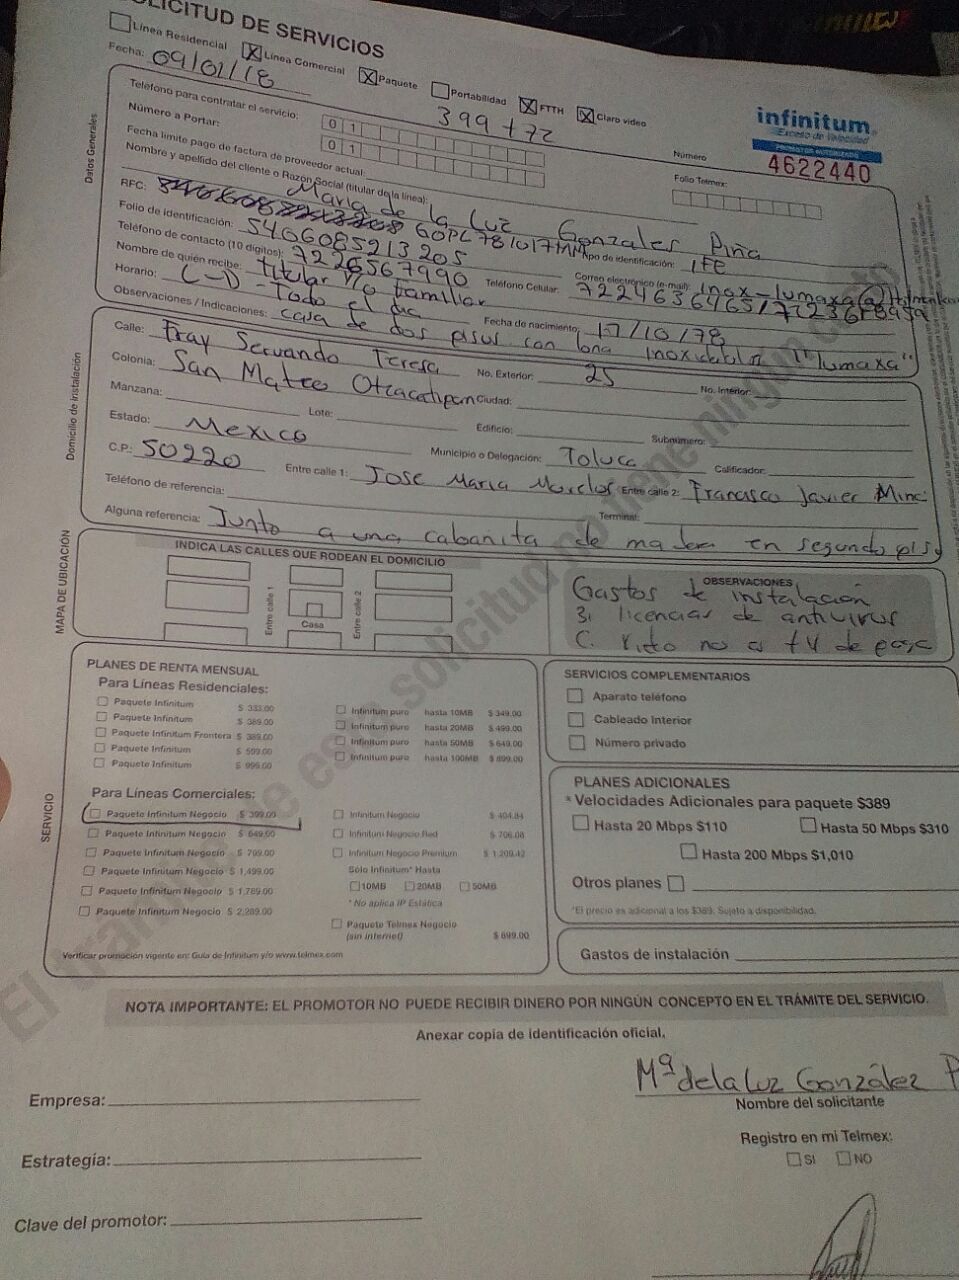 SOLICITUD DE SERVICIOS
Línea Residencial X Línea Comercial X Paquete Portabilidad X FTTH X Claro video
Fecha: 09/01/18
399 + 72
infinitum
Exceso de Velocidad
PROMOTOR AUTORIZADO
Número 4622440
Datos Generales
Teléfono para contratar el servicio: 0 1
Número a Portar: 0 1
Folio Telmex:
Fecha limite pago de factura de proveedor actual:
Nombre y apellido del cliente o Razón Social (titular de la línea): Maria de la Luz Gonzales Piña
RFC: GOPL781017MM
Tipo de identificación: IFE
Folio de identificación: 5406085213205
Teléfono de contacto (10 dígitos): 7226567990
Correo electrónico (e-mail): inox-lumaxa@
Nombre de quién recibe: titular y/o familiar
Teléfono Celular:
Horario: (-) - Todo el dia
Fecha de nacimiento: 17/10/78
Observaciones / Indicaciones: casa de dos pisos con lona "lumaxa"
Domicilio de Instalación
Calle: Fray Servando Teresa No. Exterior: 25 No. Interior:
Colonia: San Mateo Otzacatipan Ciudad:
Manzana: Lote: Edificio: Subnúmero:
Estado: Mexico Municipio o Delegación: Toluca Calificador:
C.P.: 50220 Entre calle 1: Jose Maria Morelos Entre calle 2: Francisco Javier Mina
Teléfono de referencia: Terminal:
Alguna referencia: Junto a una cabanita de madera en segundo piso
MAPA DE UBICACIÓN
INDICA LAS CALLES QUE RODEAN EL DOMICILIO
Entre calle 1
Casa
Entre calle 2
OBSERVACIONES
Gastos de instalación
3 licencias de antivirus
C. video no es tv de paga
SERVICIO
PLANES DE RENTA MENSUAL
Para Líneas Residenciales:
Paquete Infinitum $ 333.00
Paquete Infinitum $ 389.00
Paquete Infinitum Frontera $ 389.00
Paquete Infinitum $ 599.00
Paquete Infinitum $ 999.00
Infinitum puro hasta 10MB $ 349.00
Infinitum puro hasta 20MB $ 499.00
Infinitum puro hasta 50MB $ 649.00
Infinitum puro hasta 100MB $ 899.00
Para Líneas Comerciales:
Paquete Infinitum Negocio $ 399.00
Paquete Infinitum Negocio $ 649.00
Paquete Infinitum Negocio $ 799.00
Paquete Infinitum Negocio $ 1,499.00
Paquete Infinitum Negocio $ 1,789.00
Paquete Infinitum Negocio $ 2,289.00
Infinitum Negocio $ 404.84
Infinitum Negocio Red $ 706.08
Infinitum Negocio Premium $ 1,209.42
Solo Infinitum* Hasta
10MB 20MB 50MB
* No aplica IP Estática
Paquete Telmex Negocio
(sin internet) $ 699.00
Verificar promoción vigente en: Guía de Infinitum y/o www.telmex.com
SERVICIOS COMPLEMENTARIOS
Aparato teléfono
Cableado Interior
Número privado
PLANES ADICIONALES
* Velocidades Adicionales para paquete $389
Hasta 20 Mbps $110 Hasta 50 Mbps $310
Hasta 200 Mbps $1,010
Otros planes
*El precio es adicional a los $389. Sujeto a disponibilidad.
Gastos de instalación
El trámite de esta solicitud no tiene ningún costo
NOTA IMPORTANTE: EL PROMOTOR NO PUEDE RECIBIR DINERO POR NINGÚN CONCEPTO EN EL TRÁMITE DEL SERVICIO.
Anexar copia de identificación oficial.
Mª de la Luz González P
Nombre del solicitante
Empresa:
Registro en mi Telmex:
SI NO
Estrategia:
Clave del promotor: